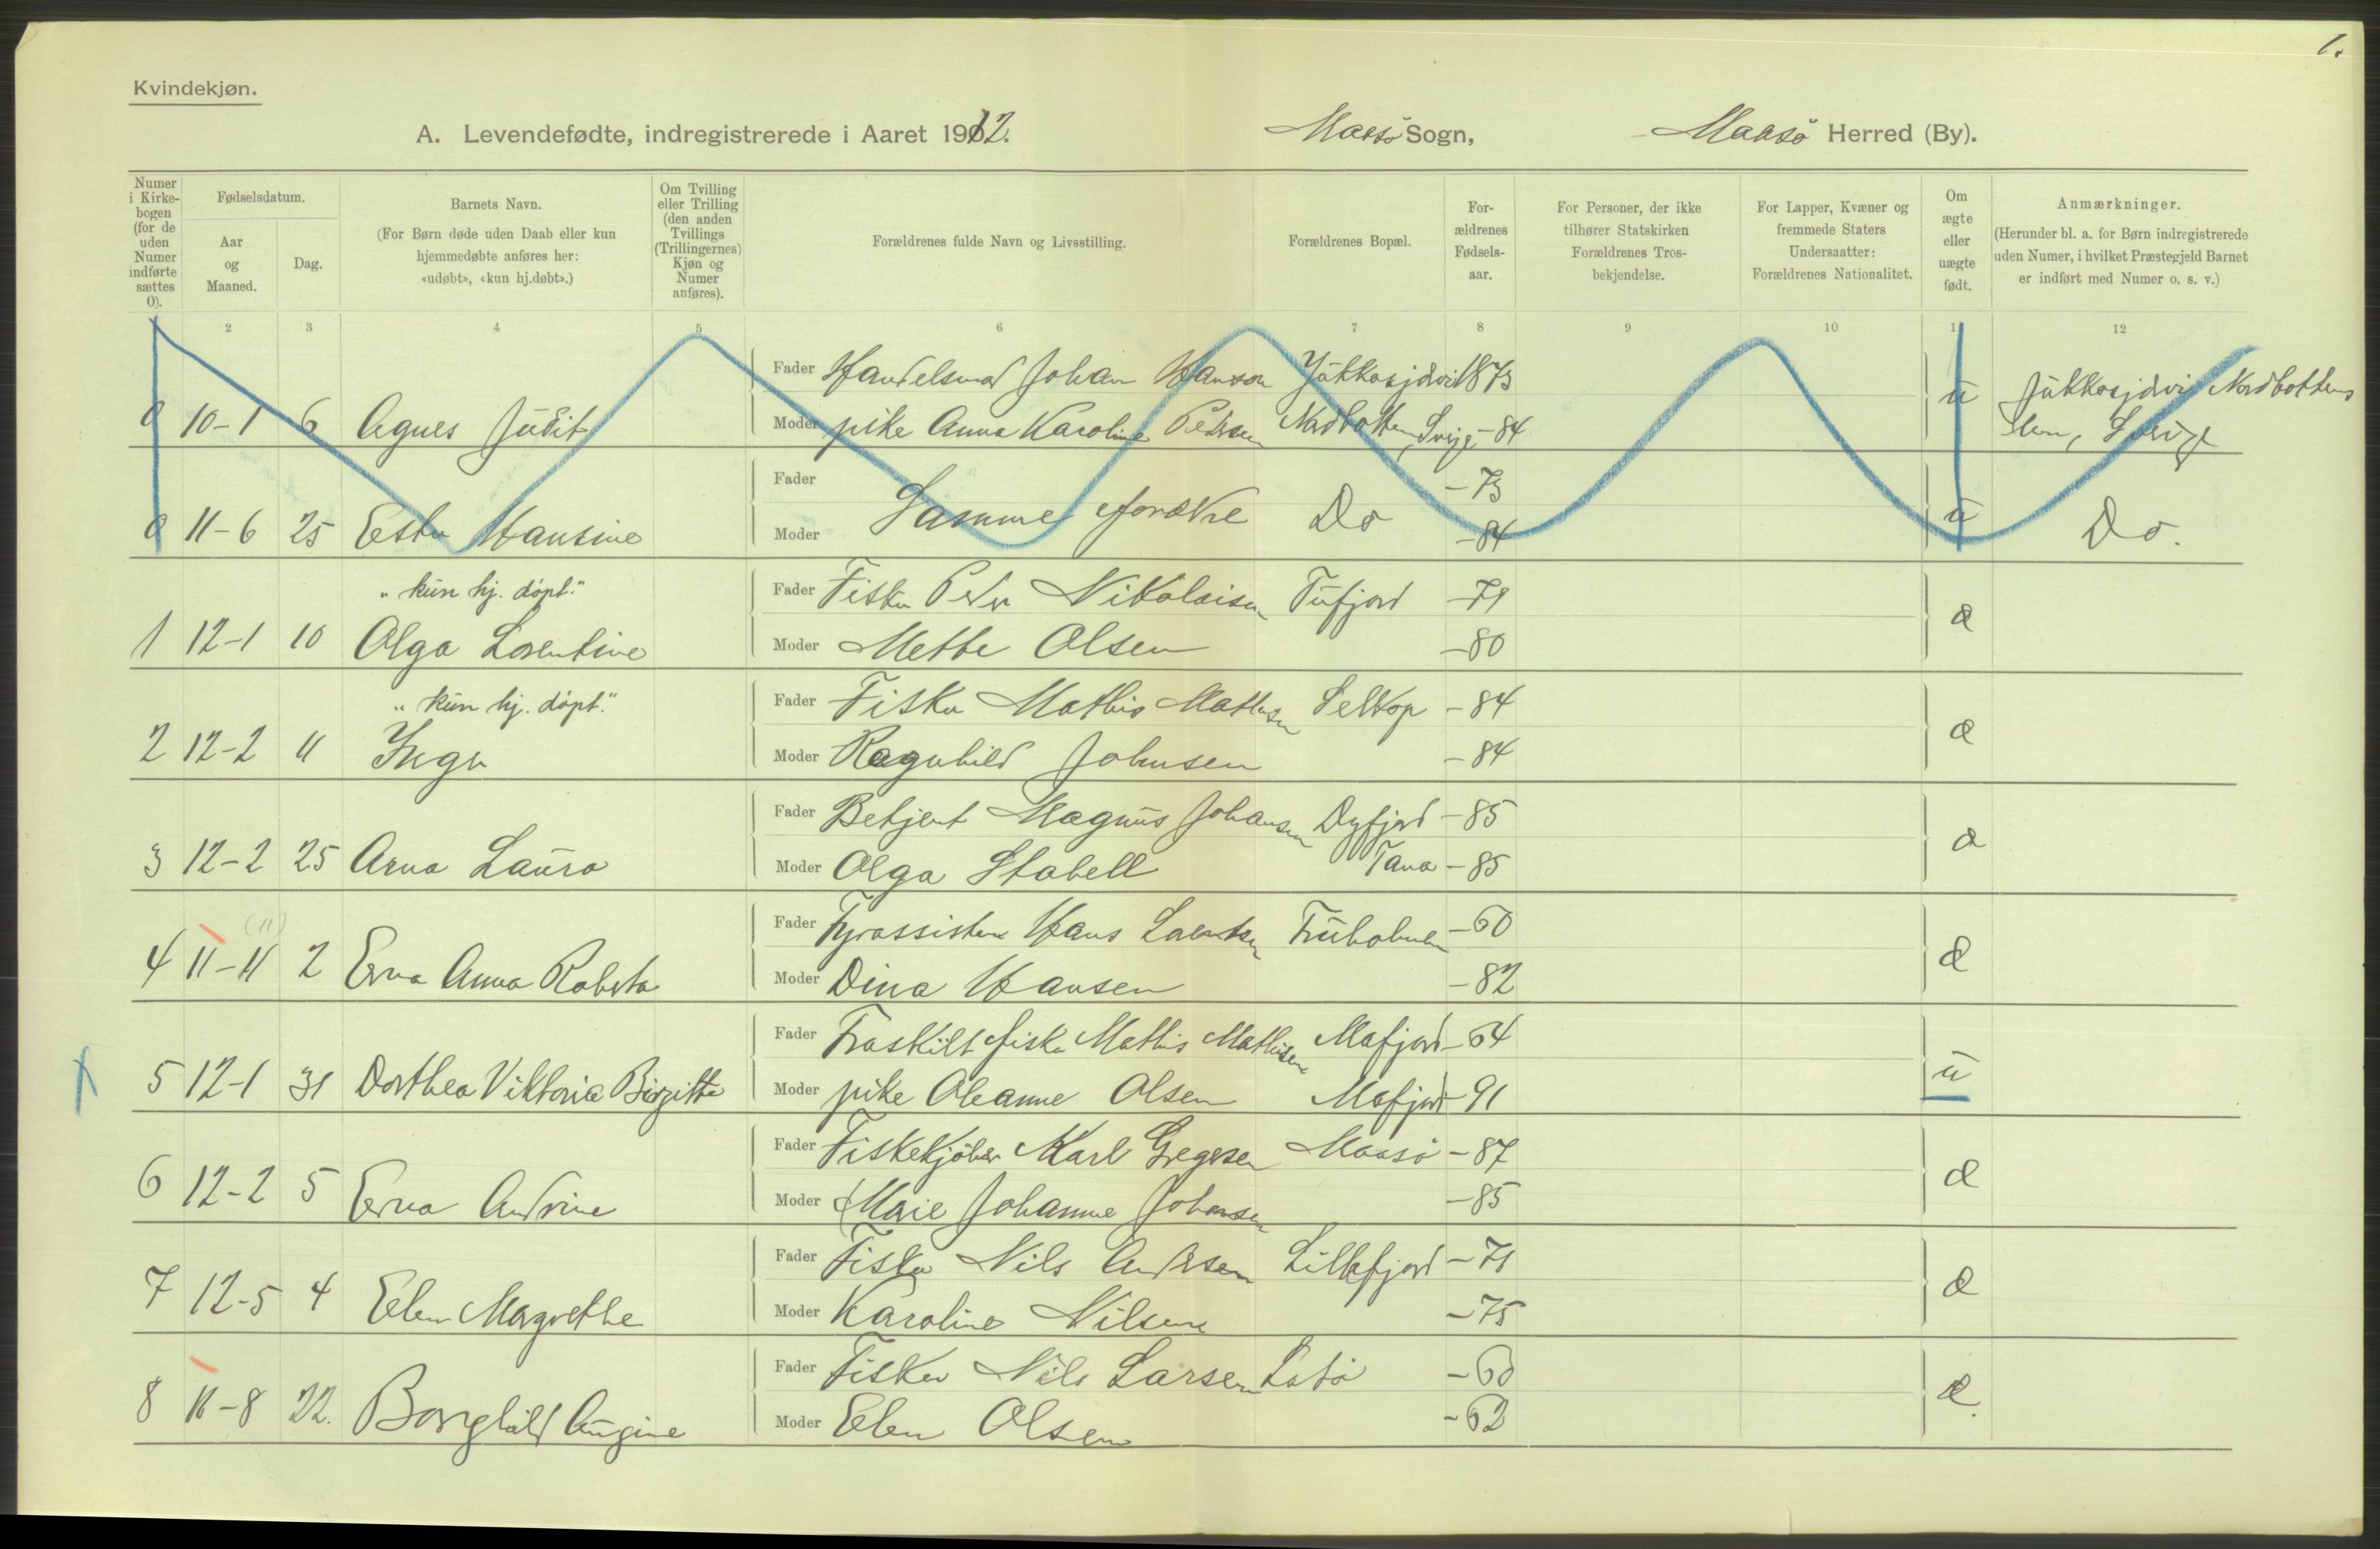 1.
Kvindekjøn.
A. Levendefødte, indregistrerede i Aaret 1912. Maasö Sogn, Maasö Herred (By).
Numer i Kirkebogen (for de uden Numer indførte sættes 0).
Fødselsdatum.
Aar og Maaned.
Dag.
Barnets Navn.
(For Børn døde uden Daab eller kun hjemmedøbte anføres her: «udøbt», «kun hj.døbt».)
Om Tvilling eller Trilling (den anden Tvillings (Trillingernes) Kjøn og Numer anføres).
Forældrenes fulde Navn og Livsstilling.
Forældrenes Bopæl.
For-ældrenes Fødsels-aar.
For Personer, der ikke tilhører Statskirken Forældrenes Tros-bekjendelse.
For Lapper, Kvæner og fremmede Staters Undersaatter: Forældrenes Nationalitet.
Om ægte eller uægte født.
Anmærkninger.
(Herunder bl. a. for Børn indregistrerede uden Numer, i hvilket Præstegjeld Barnet er indført med Numer o. s. v.)
2 3 4 5 6 7 8 9 10 1 12
Fader Handelsmand Johan Hanson Jukkasjärvi 1873
0 10-1 6 Agnes Judit Moder pike Anna Karoline Pedersen Nordbotten, Sverige -84 u Jukkasjärvi Nordbottens
len, Sverige
Fader -73
0 11-6 25 Ester Hansine Samme forældre Do u Do.
Moder -84
"kun hj. döpt." Fader Fisker Peder Nikolaisen Tufjord -79
1 12-1 10 Olga Lorentine Moder Mette Olsen -80 æ
"kun hj. döpt." Fader Fisker Mathis Mathisen Selkop -84
2 12-2 11 Inger Moder Ragnhild Johnsen -84 æ
Fader Betjent Magnus Johansen Dyfjord -85
3 12-2 25 Arna Laura Moder Olga Stabell Tana -85 æ
(11) Fader Fyrassistent Hans Lorentsen Fruholmen -60
4 11-11 2 Erna Anna Roberta Moder Dina Hansen -82 æ
Fader Fraskilt fisker Mathis Mathisen Mafjord -64
5 12-1 31 Dorthea Viktoria Birgitte Moder pike Oleanne Olsen Mafjord -91 u
Fader Fiskekjöber Karl Gregersen Maasö -87
6 12-2 5 Erna Andrine Moder Marie Johanne Johansen -85 æ
Fader Fisker Nils Andersen Lillefjord -71
7 12-5 4 Elen Margrethe Moder Karoline Nilsen -75 æ
Fader Fisker Nils Larsen -60
8 11-8 22. Borghild Augine Moder Elen Olsen -62 æ.